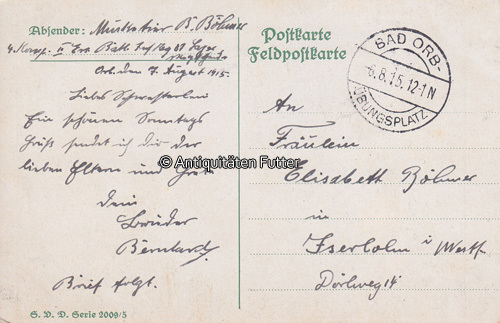 Absender: Musketier B. Böhmer
4. Komp. II Ers. Batl. Inf. Reg 81
Orb, den 7. August 1915.
Liebes Schwesterlein
Ein schönen Sonntags
Gruß sendet ich dir der
lieben Eltern und
Dein
Bruder
Bernhard
Brief folgt.
S. V. D. Serie 2009/5
Postkarte
Feldpostkarte
BAD ORB-
6.8.15.12-1N
ÜBUNGSPLATZ
An
Fräulein
Elisabeth Böhmer
in
Iserlohn i Westf.
Dörlweg 14
© Antiquitäten Futter